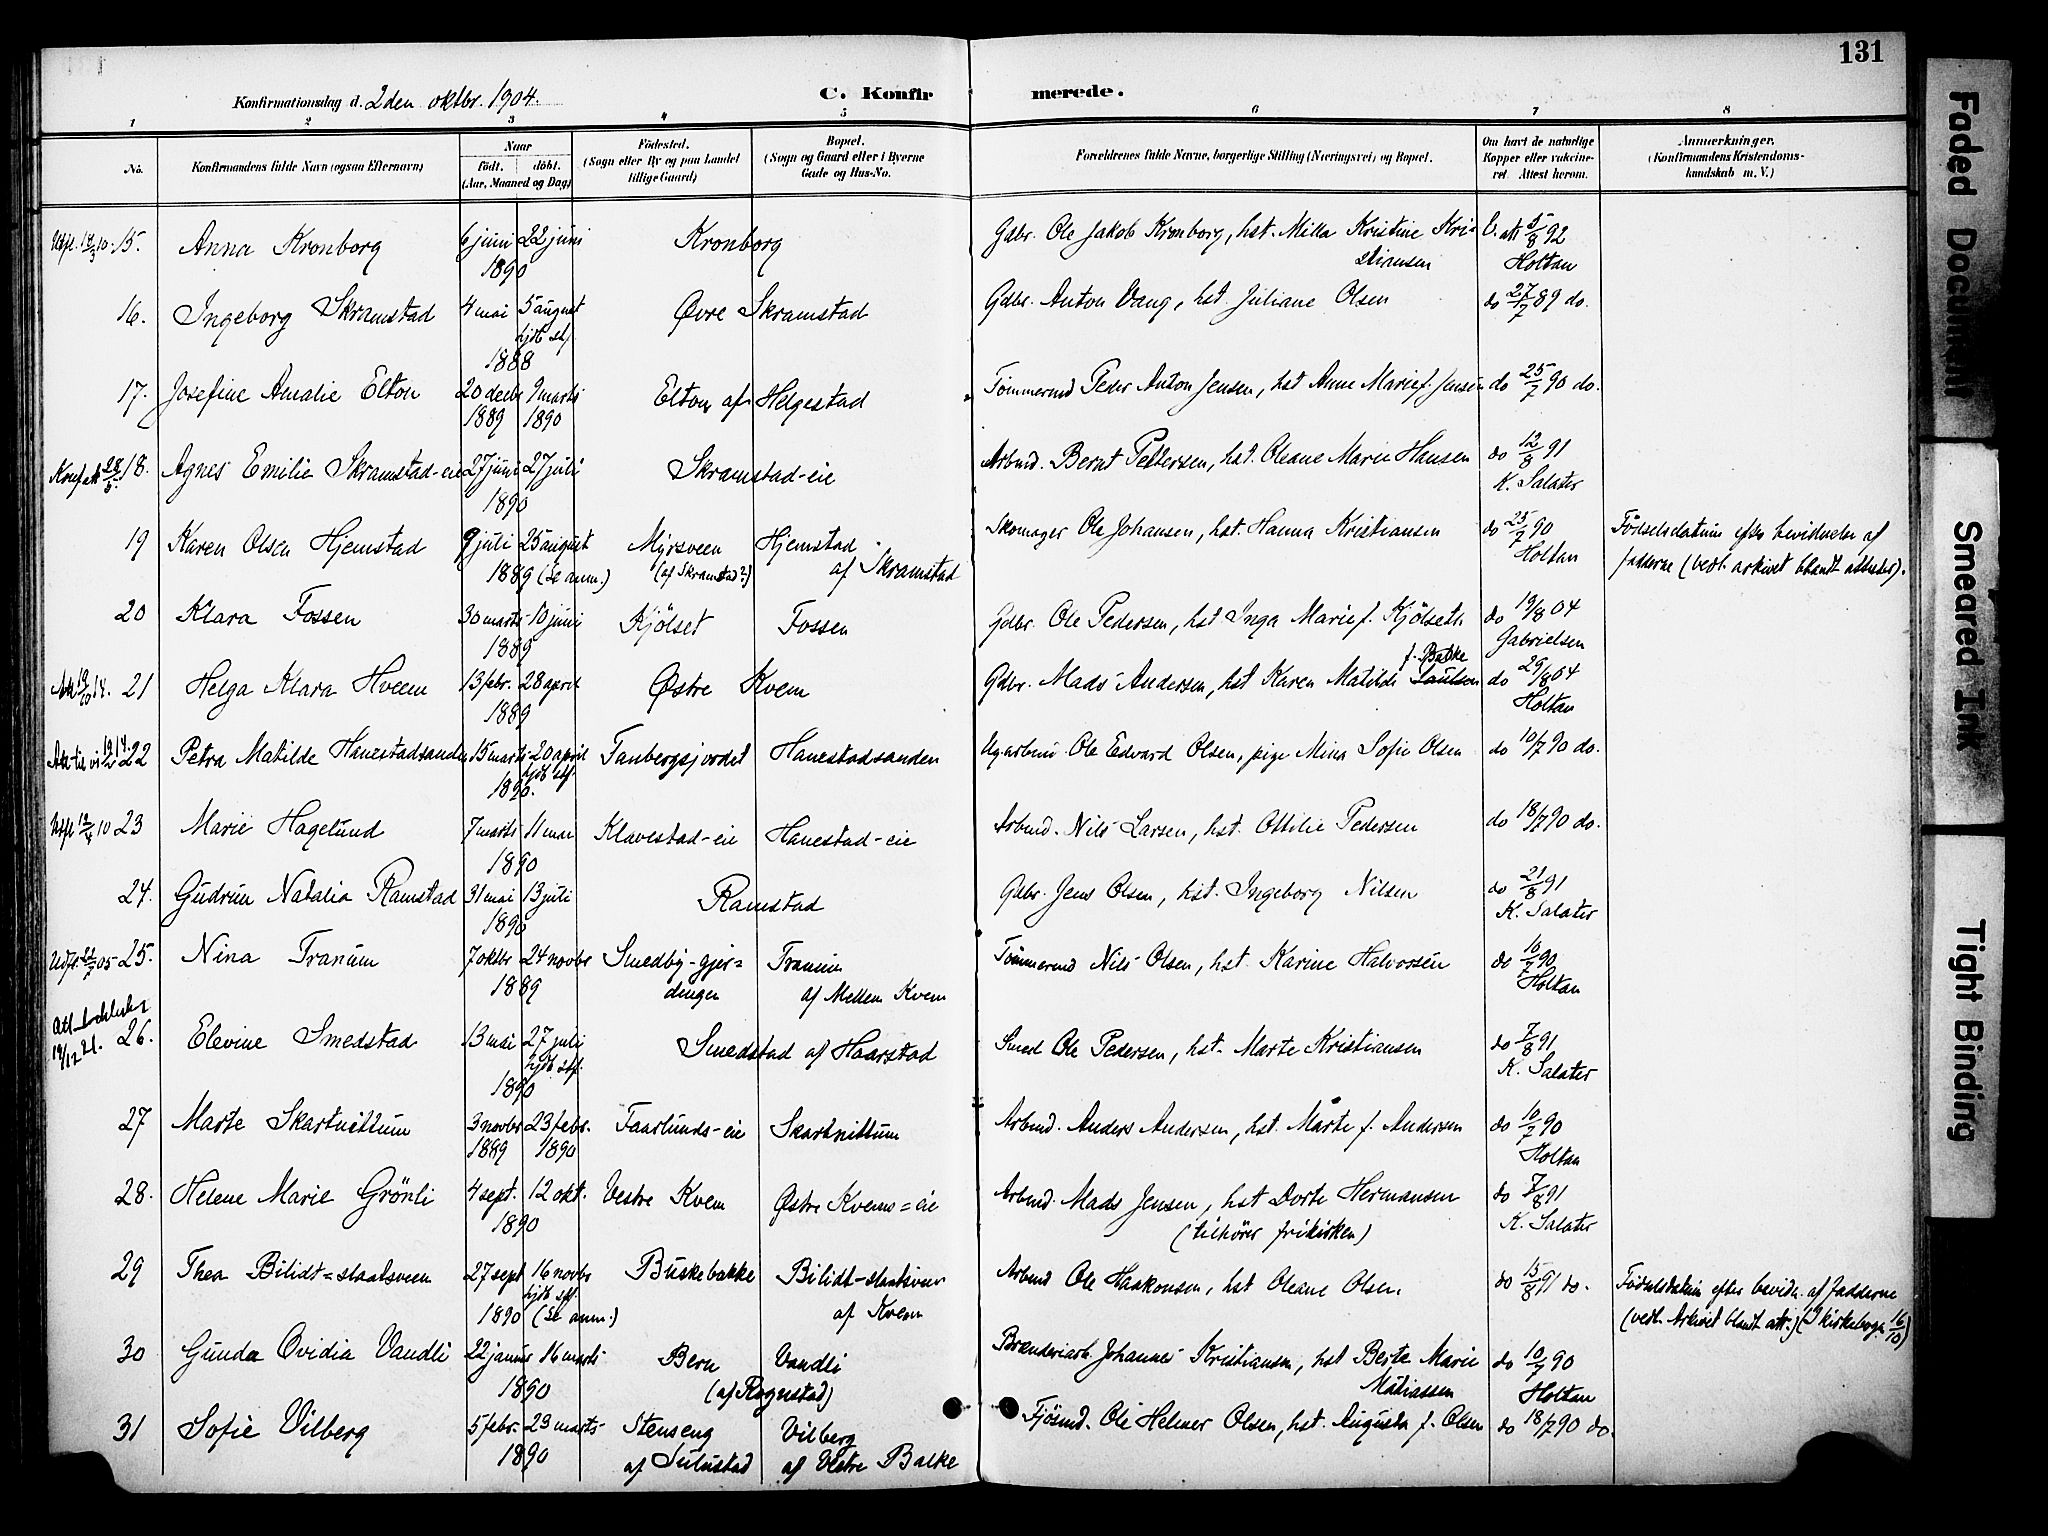 131
Konfirmationsdag d. 2den oktbr. 1904.
C. Konfirmerede.
1 2 3 4 5 6 7 8
No.
Konfirmandens fulde Navn (ogsaa Efternavn)
Naar
født. døbt.
(Aar, Maaned og Dag)
Fødested.
(Sogn eller By og paa Landet
tillige Gaard)
Bopæl.
(Sogn og Gaard eller i Byerne
Gade og Hus-No.
Forældrenes fulde Navne, borgerlige Stilling (Næringsvei) og Bopæl.
Om havt de naturlige
Kopper eller vakcine-
ret. Attest herom.
Anmærkninger.
(Konfirmandens Kristendoms-
kundskab m. V.)
Utfl. 14/3 10. 15. Anna Kronborg 6 juni 22 juni Kronborg Gdbr. Ole Jakob Kronborg, hst. Milla Kristine Kri- V. att 5/8 92
1890 stiansen Holtan
16. Ingeborg Skramstad 4 mai 5 august Øvre Skramstad Gdbr. Anton Vang, hst. Juliane Olsen do 27/7 89 do.
hjdb st.
1888
17. Josefine Amalie Elton 20 decbr 9 marts Elton af Helgestad Tømmermd Peder Anton Jensen, hst Anne Marie f. Jensen do 25/7 90 do.
1889 1890
Konf. att 28/5. 18. Agnes Emilie Skramstad-eie 27 juni 27 juli Skramstad-eie Arbmd. Bernt Pettersen, hst. Oleane Marie Hansen do 12/8 91
1890 K. Salater
19 Karen Olsen Hjemstad 9 juli 25 august Myrsveen Hjemstad Skomager Ole Johansen, hst. Hanna Kristiansen do 25/7 90 Fødselsdatum efter bevidnelse af
1889 (Se anm.) (af Skramstad?) af Skramstad Holtan fadderne (vedl. arkivet blandt attester).
20 Klara Fossen 30 marts 10 juni Kjölset Fossen Gdbr. Ole Pedersen, hst Inga Marie f. Kjölseth do 19/8 04
1889 Gabrielsen
f. Balke
Att 19/10 14. 21 Helga Klara Hveem 13 febr. 28 april Østre Kvem Gdbr. Mads Andersen, hst Karen Matilde Paulsen do 29/8 04
1889 Holtan
22 Petra Matilde Hanestadsanden 15 marts 20 april Tanbergsjordet Hanestadsanden Ugarbmd. Ole Edvard Olsen, pige Mina Sofie Olsen do 10/7 90 do.
hjdb stf.
1890.
Utfl 12/4 10 23 Marie Hagelund 7 marts 11 mai Klavestad-eie Hanestad-eie Arbmd. Nils Larsen, hst. Ottilie Pedersen do 18/7 90 do.
1890
24. Gudrun Natalia Ramstad 31 mai 13 juli Ramstad Gdbr. Jens Olsen, hst. Ingeborg Nilsen do 21/8 91
1890 K. Salater
Udfl. 22/7 05 25. Nina Tranum 7 oktbr 24 novbr Smedby-gjer= Tranum Tømmermd Nils Olsen, hst. Karine Halvorsen do 10/7 90
1889 dingen af Mellem Kvem Holtan
19/12 21. 26. Elevine Smedstad 13 mai 27 juli Smedstad af Haarstad Smed Ole Pedersen, hst. Marte Kristiansen do 7/8 91
hjdb stf. K. Salater
1890
27 Marte Skartnittum 3 novbr 23 febr. Faarlunds-eie Skartnittum Arbmd. Anders Andersen, hst. Marte f. Andersen do 10/7 90
1889 1890 Holtan
28. Helene Marie Grönli 4 sept. 12 okt. Vestre Kvem Østre Kvems=eie Arbmd. Mads Jensen, hst Dorte Hermansen do 7/8 91
1890 (tilhører frikirken) K. Salater
29 Thea Bilidt=slaatsveen 27 sept 16 novbr Buskebakke Bilidt-slaatsveen Arbmd Ole Haakonsen, hst Oleane Olsen do 15/8 91 do. Fødselsdatum efter bevidn. af fadderne
hjdb stf.
1890 (Se anm.) af Kvem (vedl. Arkivet blandt att.) (I kirkeboga 16/10)
30 Gunda Ovidia Vandli 22 januar 16 marts Bern Vandli Brænderiarb Johannes Kristiansen, hst Berte Marie do 10/7 90
1890 (af Rognstad) Matiassen Holtan
31 Sofie Vilberg 5 febr. 23 marts Stenseng Vilberg Fjösmd. Ole Helmer Olsen, hst. Augusta f. Olsen do 18/7 90 do.
1890 af Sulustad af Vestre Balke
Faded Document
Smeared Ink
Tight Binding